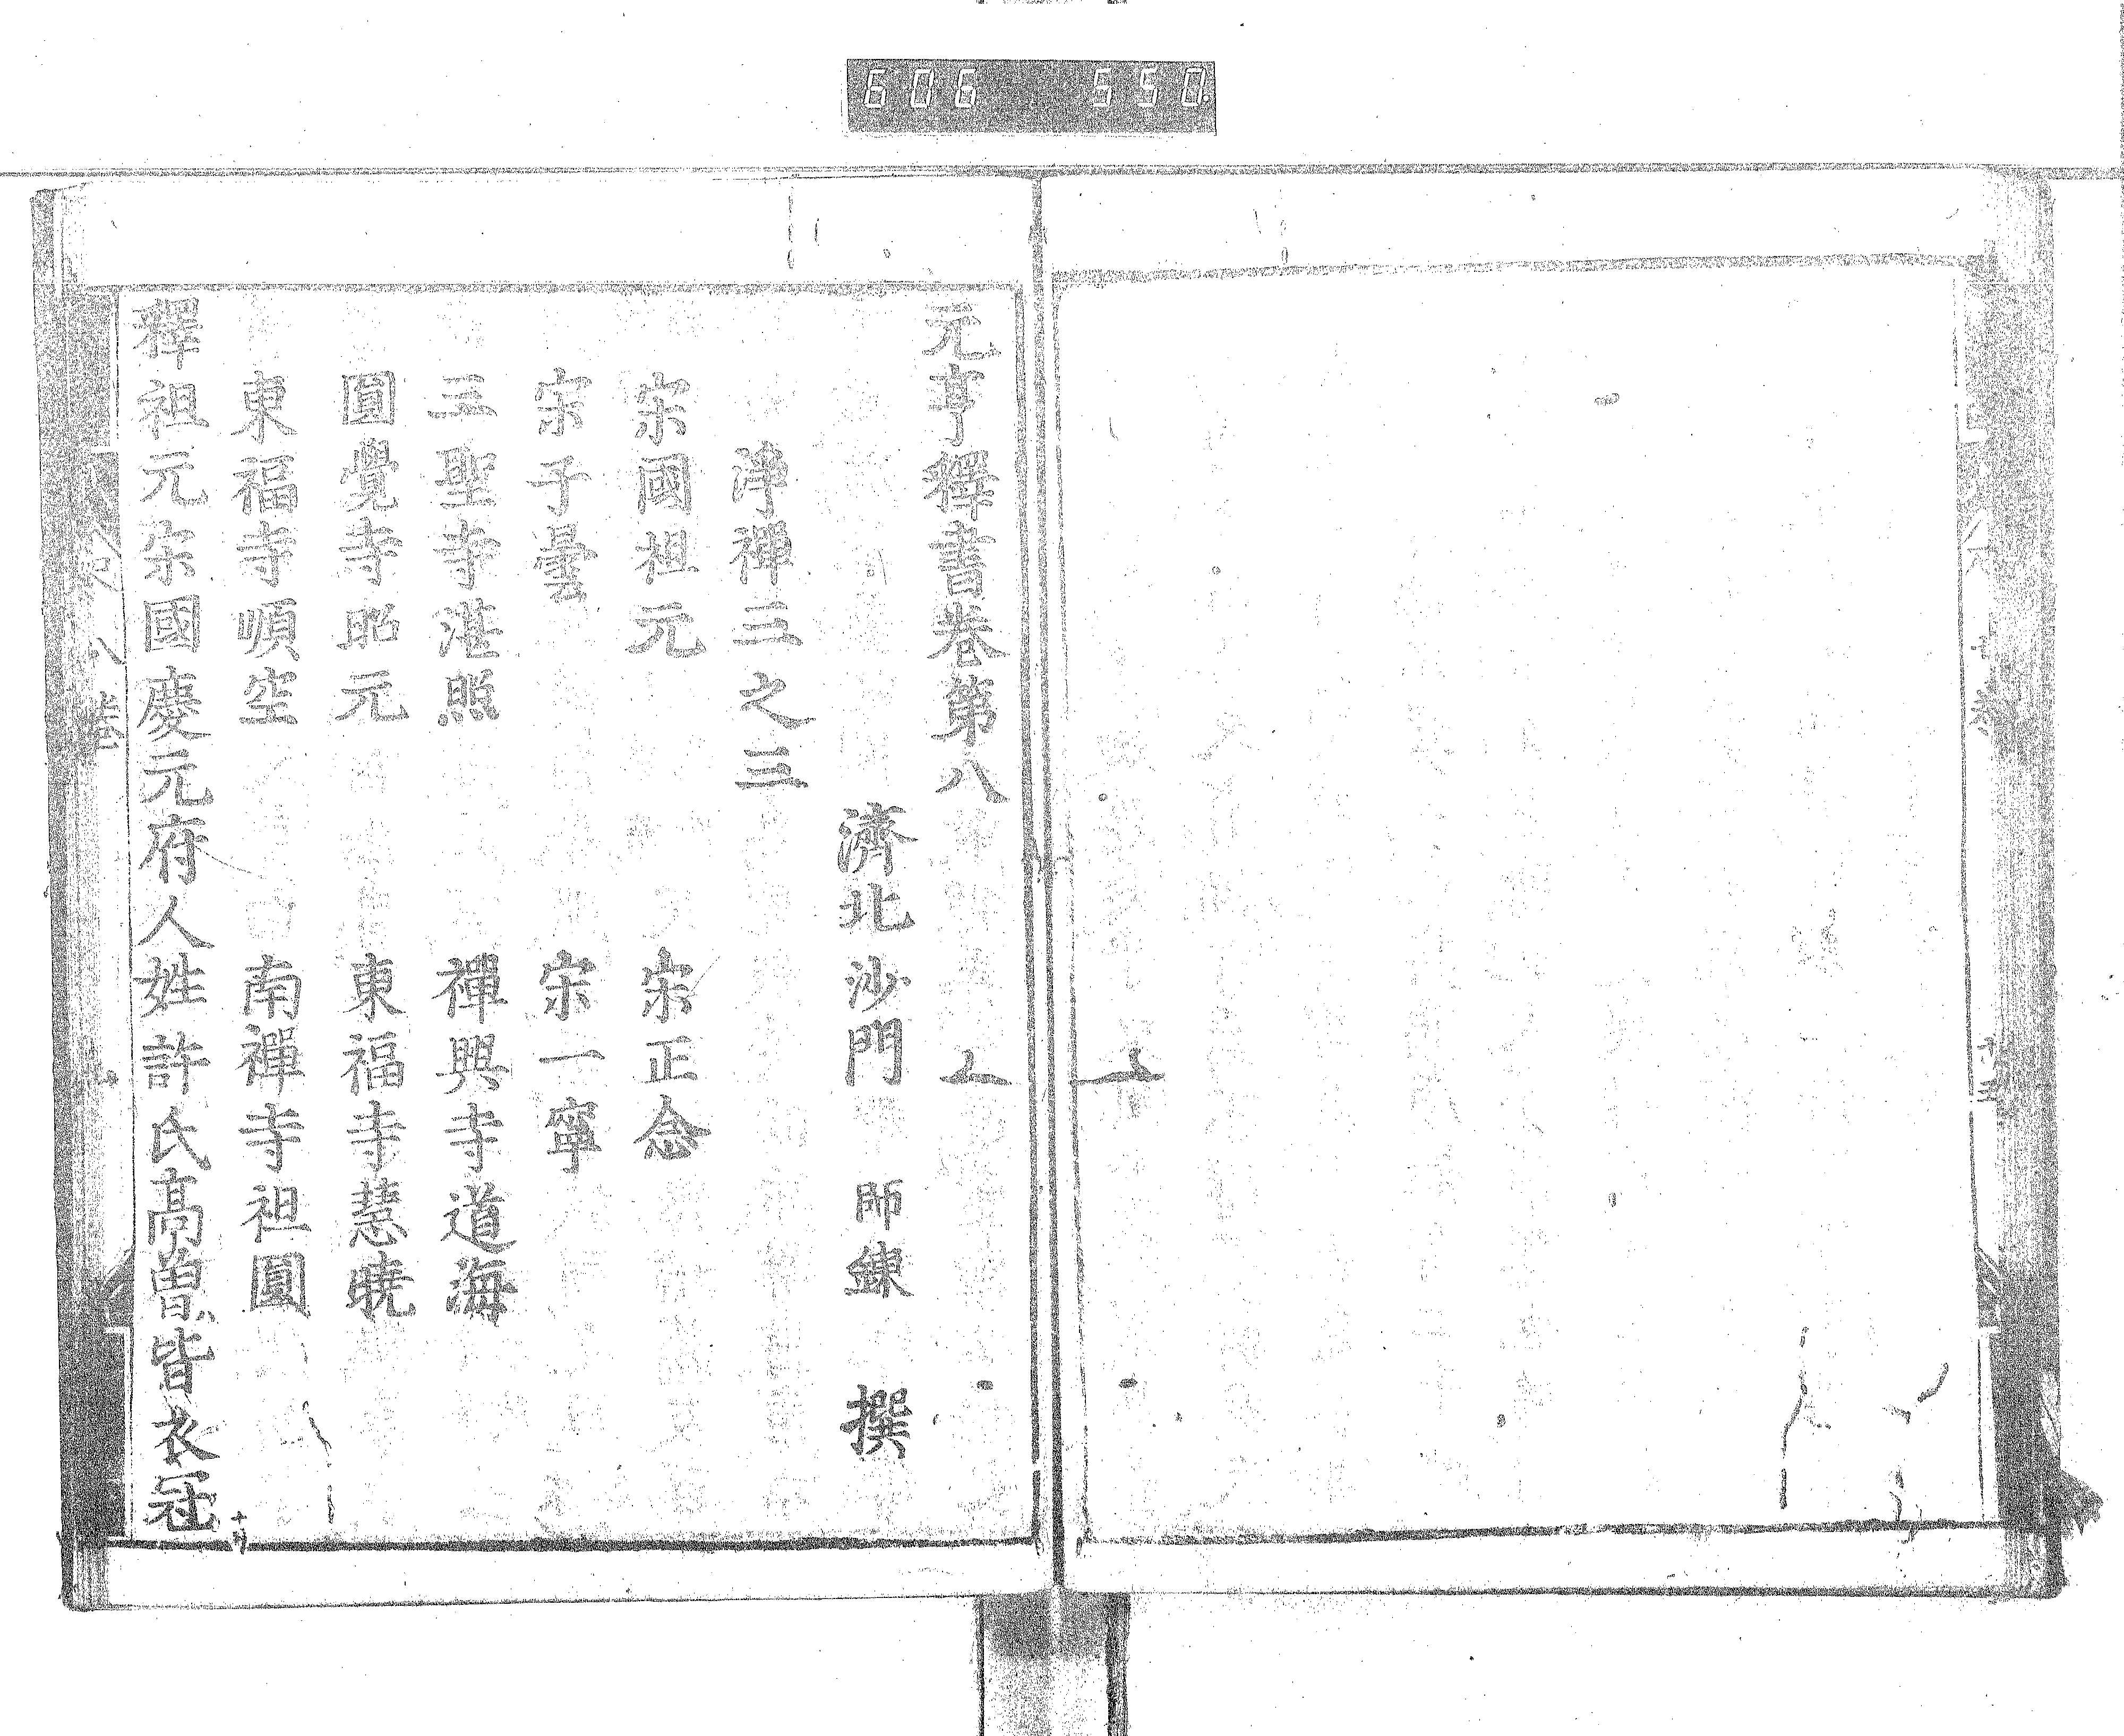 606 550
元亨釋書卷第八
濟北沙門 師錬 撰
淨禪三之三
宋國祖元 宋正念
宋子曇 宋一寧
三聖寺湛照 禪興寺道海
圓覺寺昭元 東福寺慧曉
東福寺順空 南禪寺祖圓
釋祖元宋國慶元府人姓許氏高曾皆衣冠